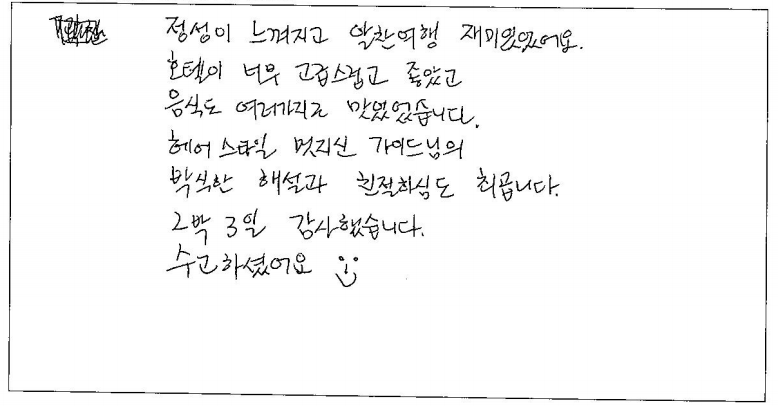 정성이 느껴지고 알찬여행 재미있었어요.
호텔이 너무 고급스럽고 좋았고
음식도 여러가지로 맛있었습니다.
헤어스타일 멋지신 가이드님의
박식한 해설과 친절하심도 최곱니다.
2박 3일 감사했습니다.
수고하셨어요